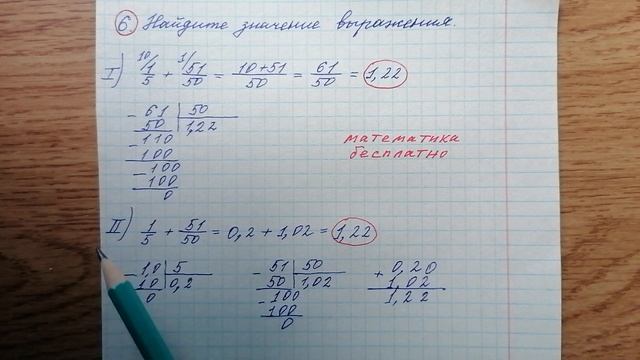 6 Найдите значение выражения.
I) 10/ 1/5 + 1/ 51/50 = 10+51/50 = 61/50 = 1,22
- 61 | 50
50 | 1,22
- 110
100
- 100
- 100
0
математика
бесплатно
II) 1/5 + 51/50 = 0,2 + 1,02 = 1,22
- 1,0 | 5
10 | 0,2
0
- 51 | 50
50 | 1,02
- 100
100
0
+ 0,20
1,02
1,22